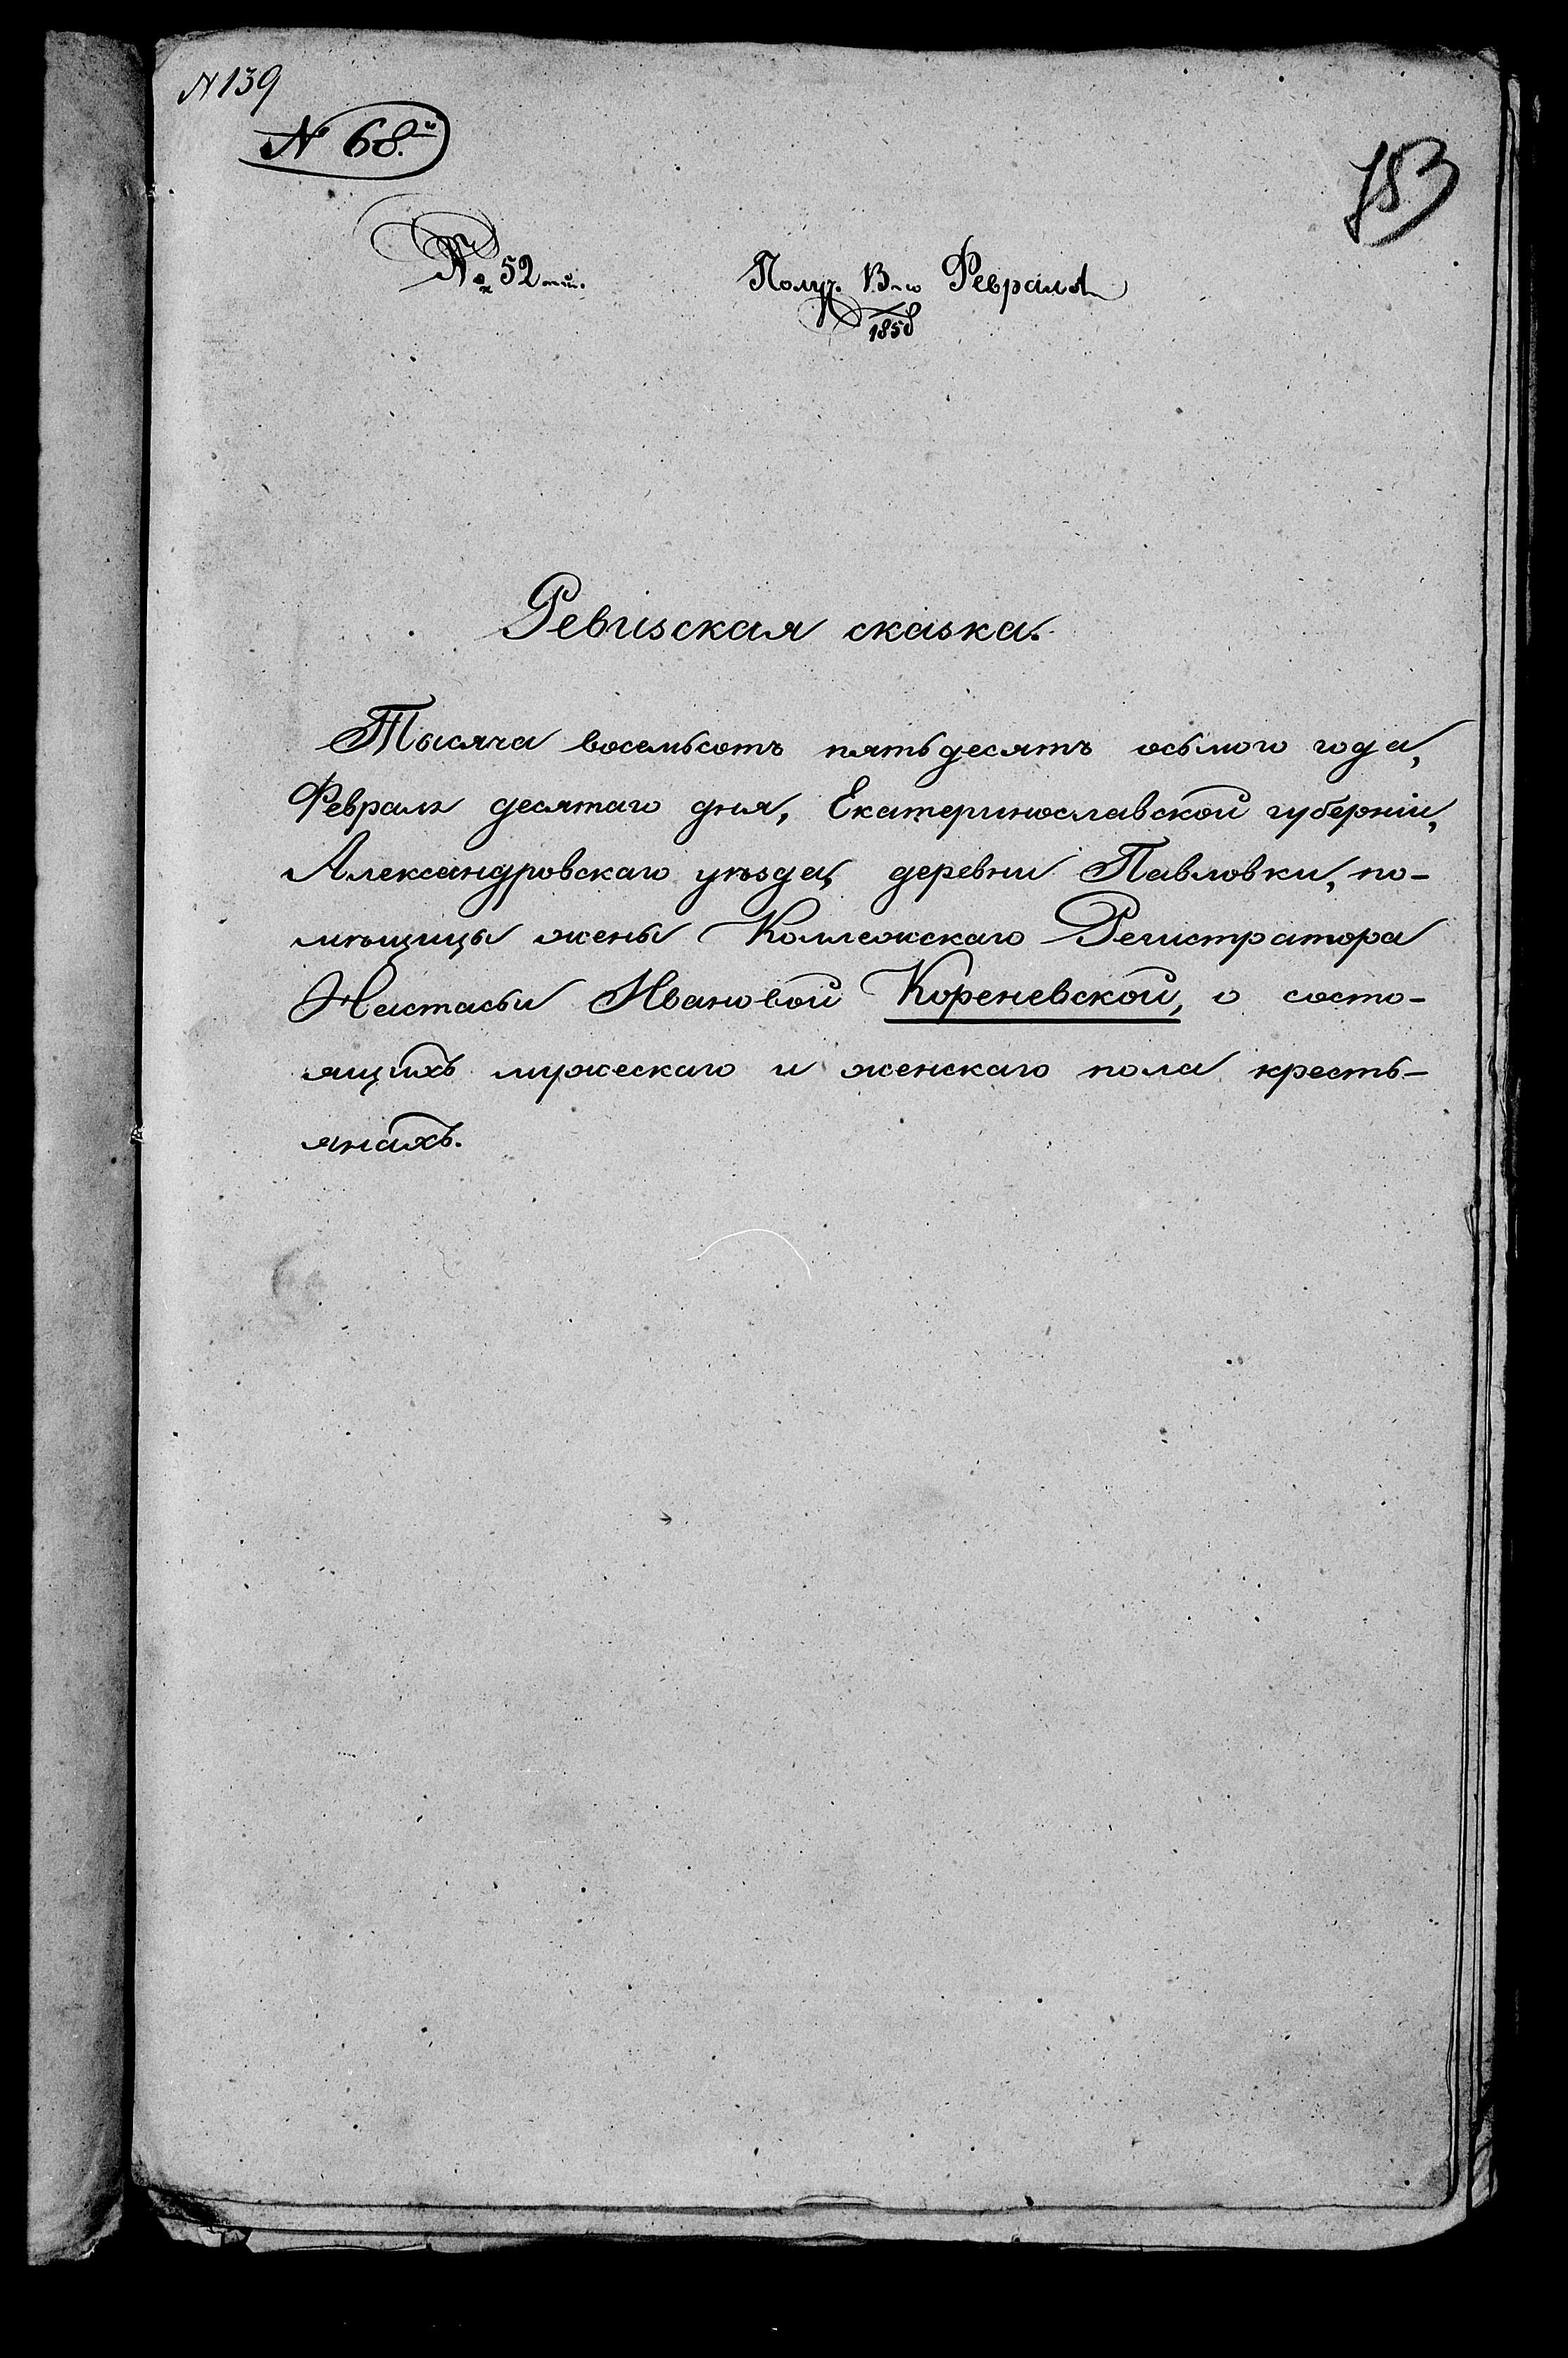 N 139
N 68.й
783
№ 52-й.
Получ. 13-го Февраля
1858
Ревизская сказка.
Тысяча восемьсотъ пятьдесятъ осьмого года,
Февраля десятаго дня, Екатеринославской губерніи,
Александровскаго уѣзда, деревни Павловки, по-
мѣщицы жены Коллежскаго Регистратора
Настасьи Ивановой Кореневской, о состо-
ящихъ мужескаго и женскаго пола кресть-
янахъ.